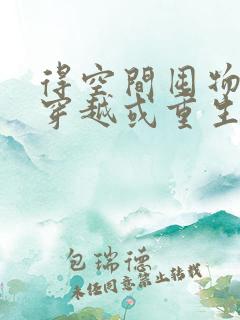 得空間囤物
穿越或重生
包瑞德
未经同意禁止转载